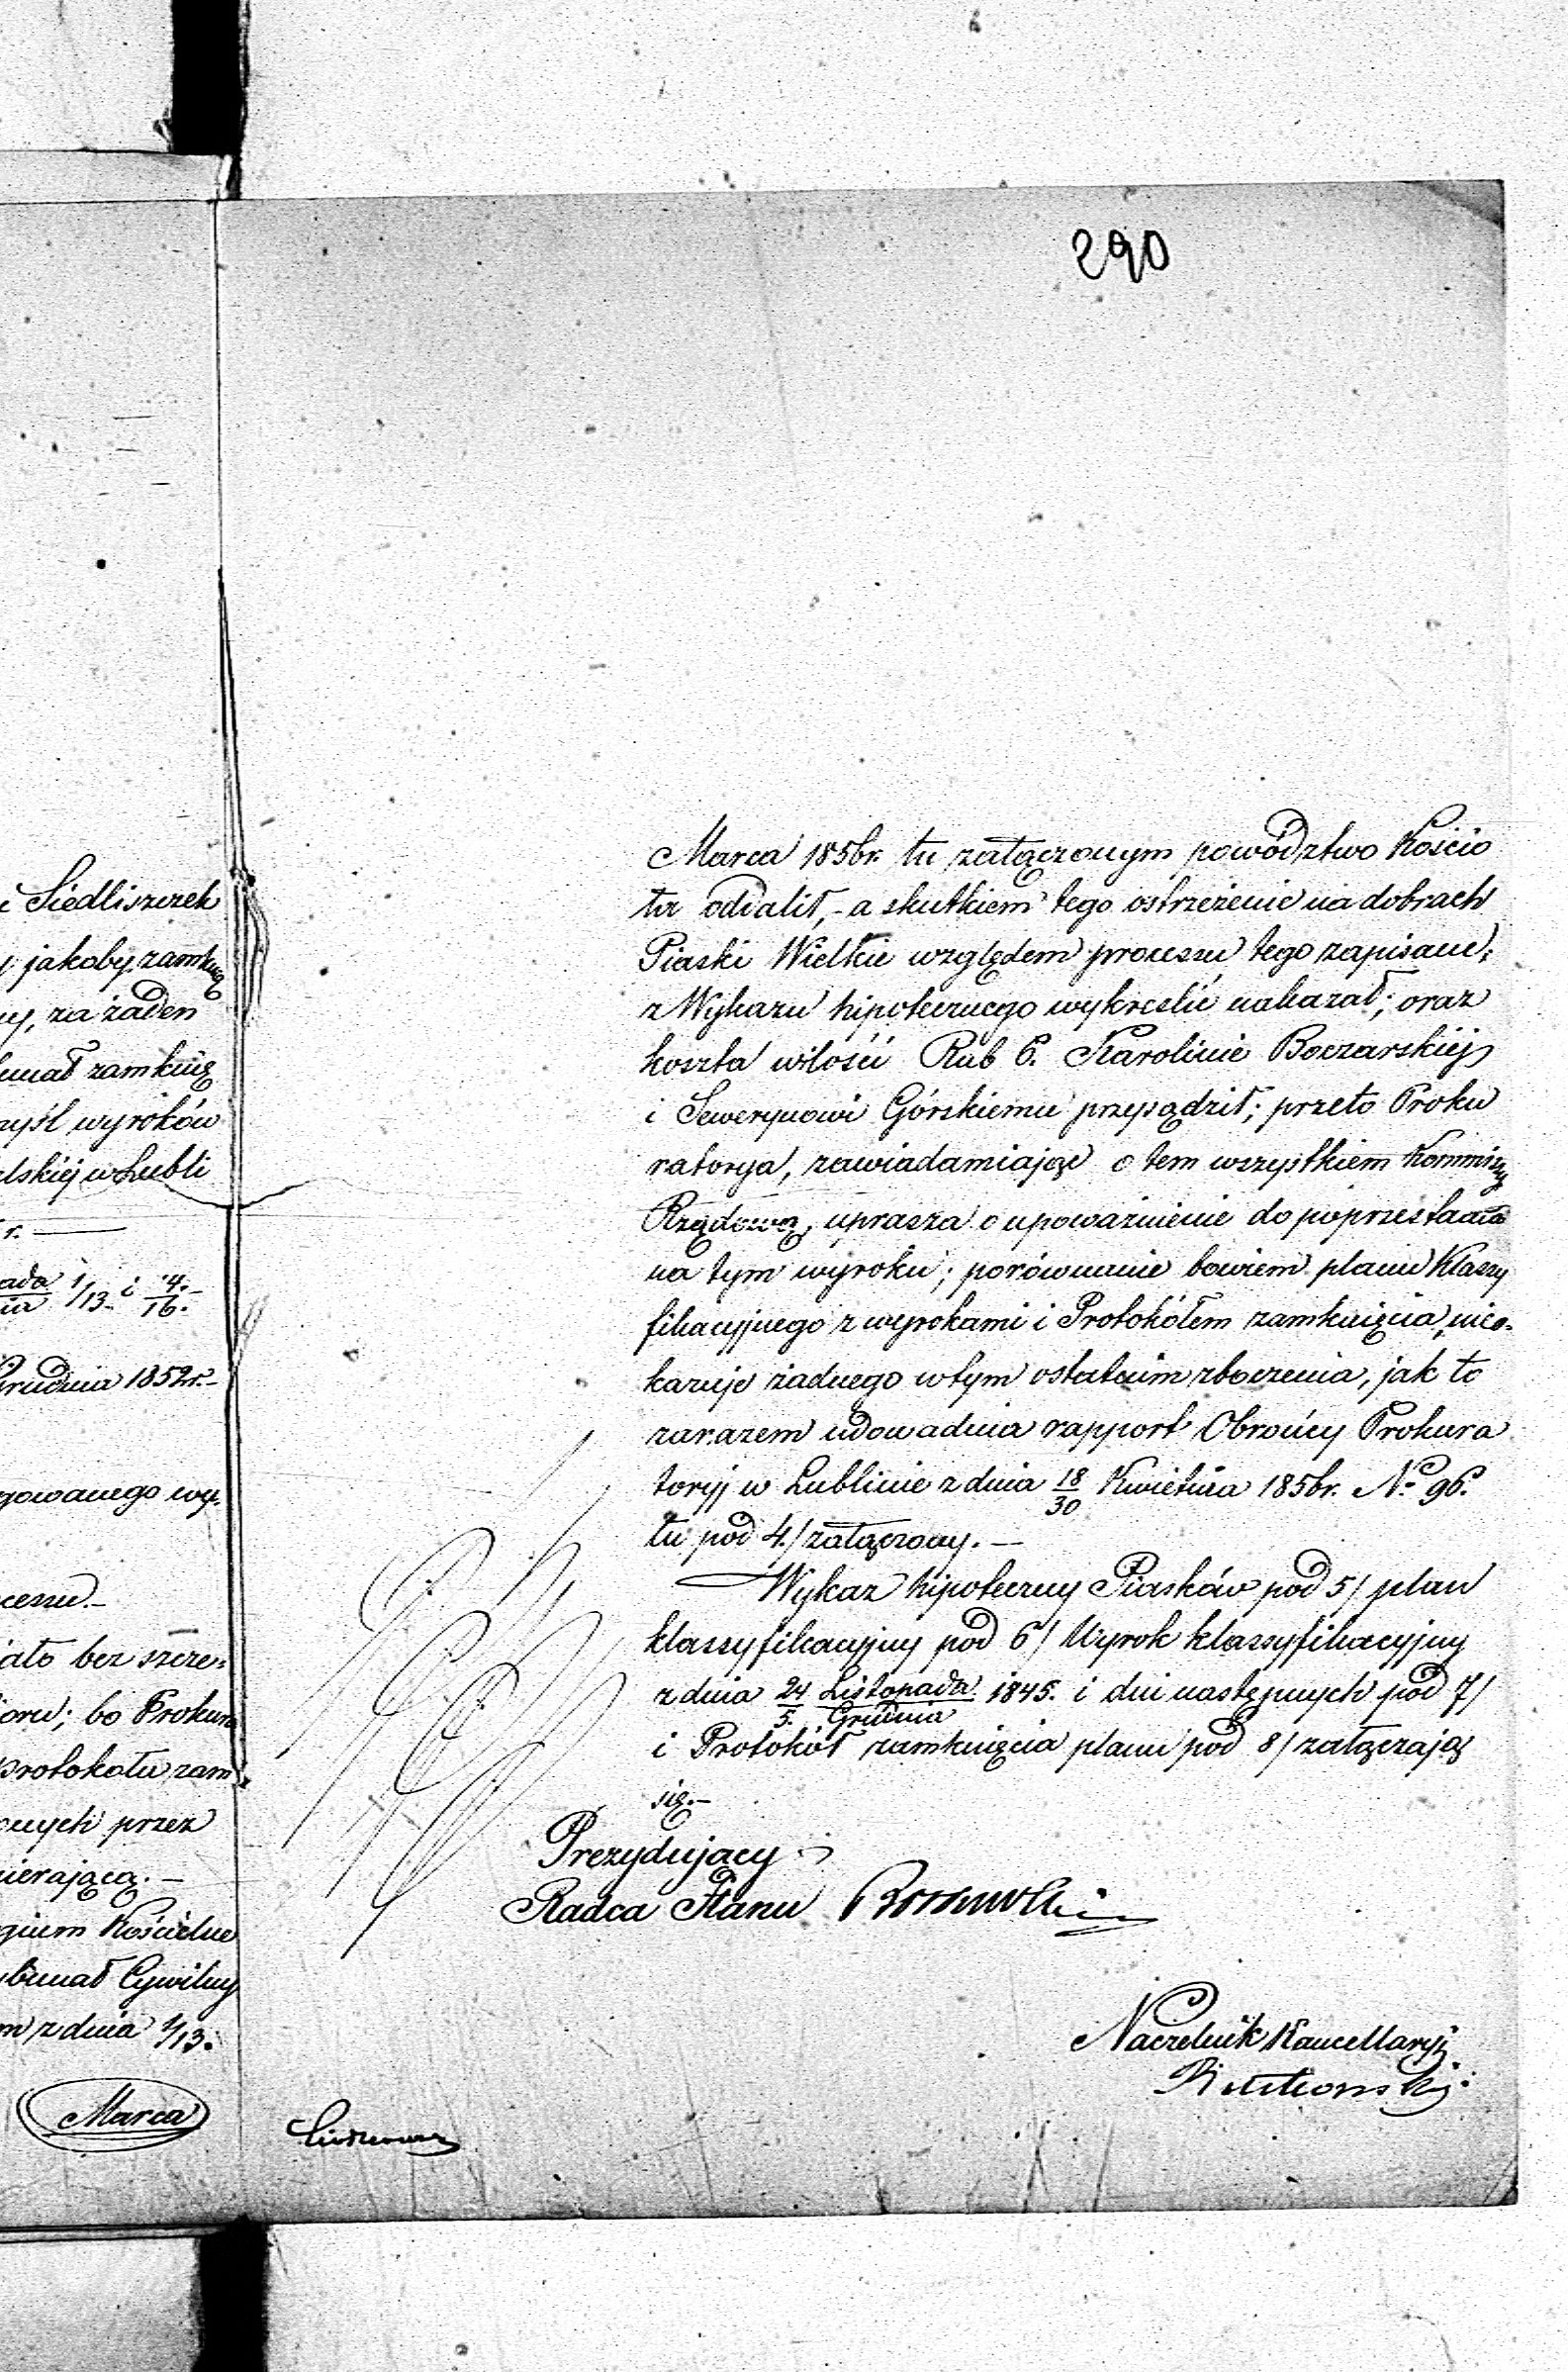 290
i Siedliszczek
jakoby zamknę
ny, za żaden
bunał zamknię
myśl wyroków
alskiej w Lubli
r.
ada 1/13 i 4/16.
nia
Grudnia 1852r.
gowanego wy-
cessu.-
iało bez szcze-
ioru; bo Prokura
protokołu zam
onych przez
ierającą.-
gium Kościelne
ybunał Cywilny
m z dnia 1/13.
Marca
Marca 1856r. tu załączonym powództwo Kościo
ła oddalił,- a skutkiem tego ostrzeżenie na dobrach
Piaski Wielkie względem processu tego zapisane,
z Wykazu hipotecznego wykreślić nakazał; oraz
koszta w ilości Rub 6. Karolinie Boczarskiéj
i Sewerynowi Górskiemu przysądził; przeto Proku
ratorya, zawiadamiając o tem wszystkiem Kommissyę
Rządową, uprasza o upoważnienie do poprzestania
na tym wyroku; porównanie bowiem planu Klassy
fikacyjnego z wyrokami i Protokółem zamknięcia, nieo-
kazuje żadnego w tym ostatnim zboczenia, jak to
zarazem udowadnia rapport Obrońcy Prokura
toryj w Lublinie z dnia 18/30 Kwietnia 1856r. No 96.
tu pod 4./ załączony.-
Wykaz hipoteczny Piasków pod 5/ plan
klassyfikacyjny pod 6/ Wyrok klassyfikacyjny
z dnia 24 Listopada/5. Grudnia 1845. i dni następnych pod 7/
i Protokół zamknięcia planu pod 8/ załączają
się.-
Prezydujący
Radca Stanu
Naczelnik Kancellaryj